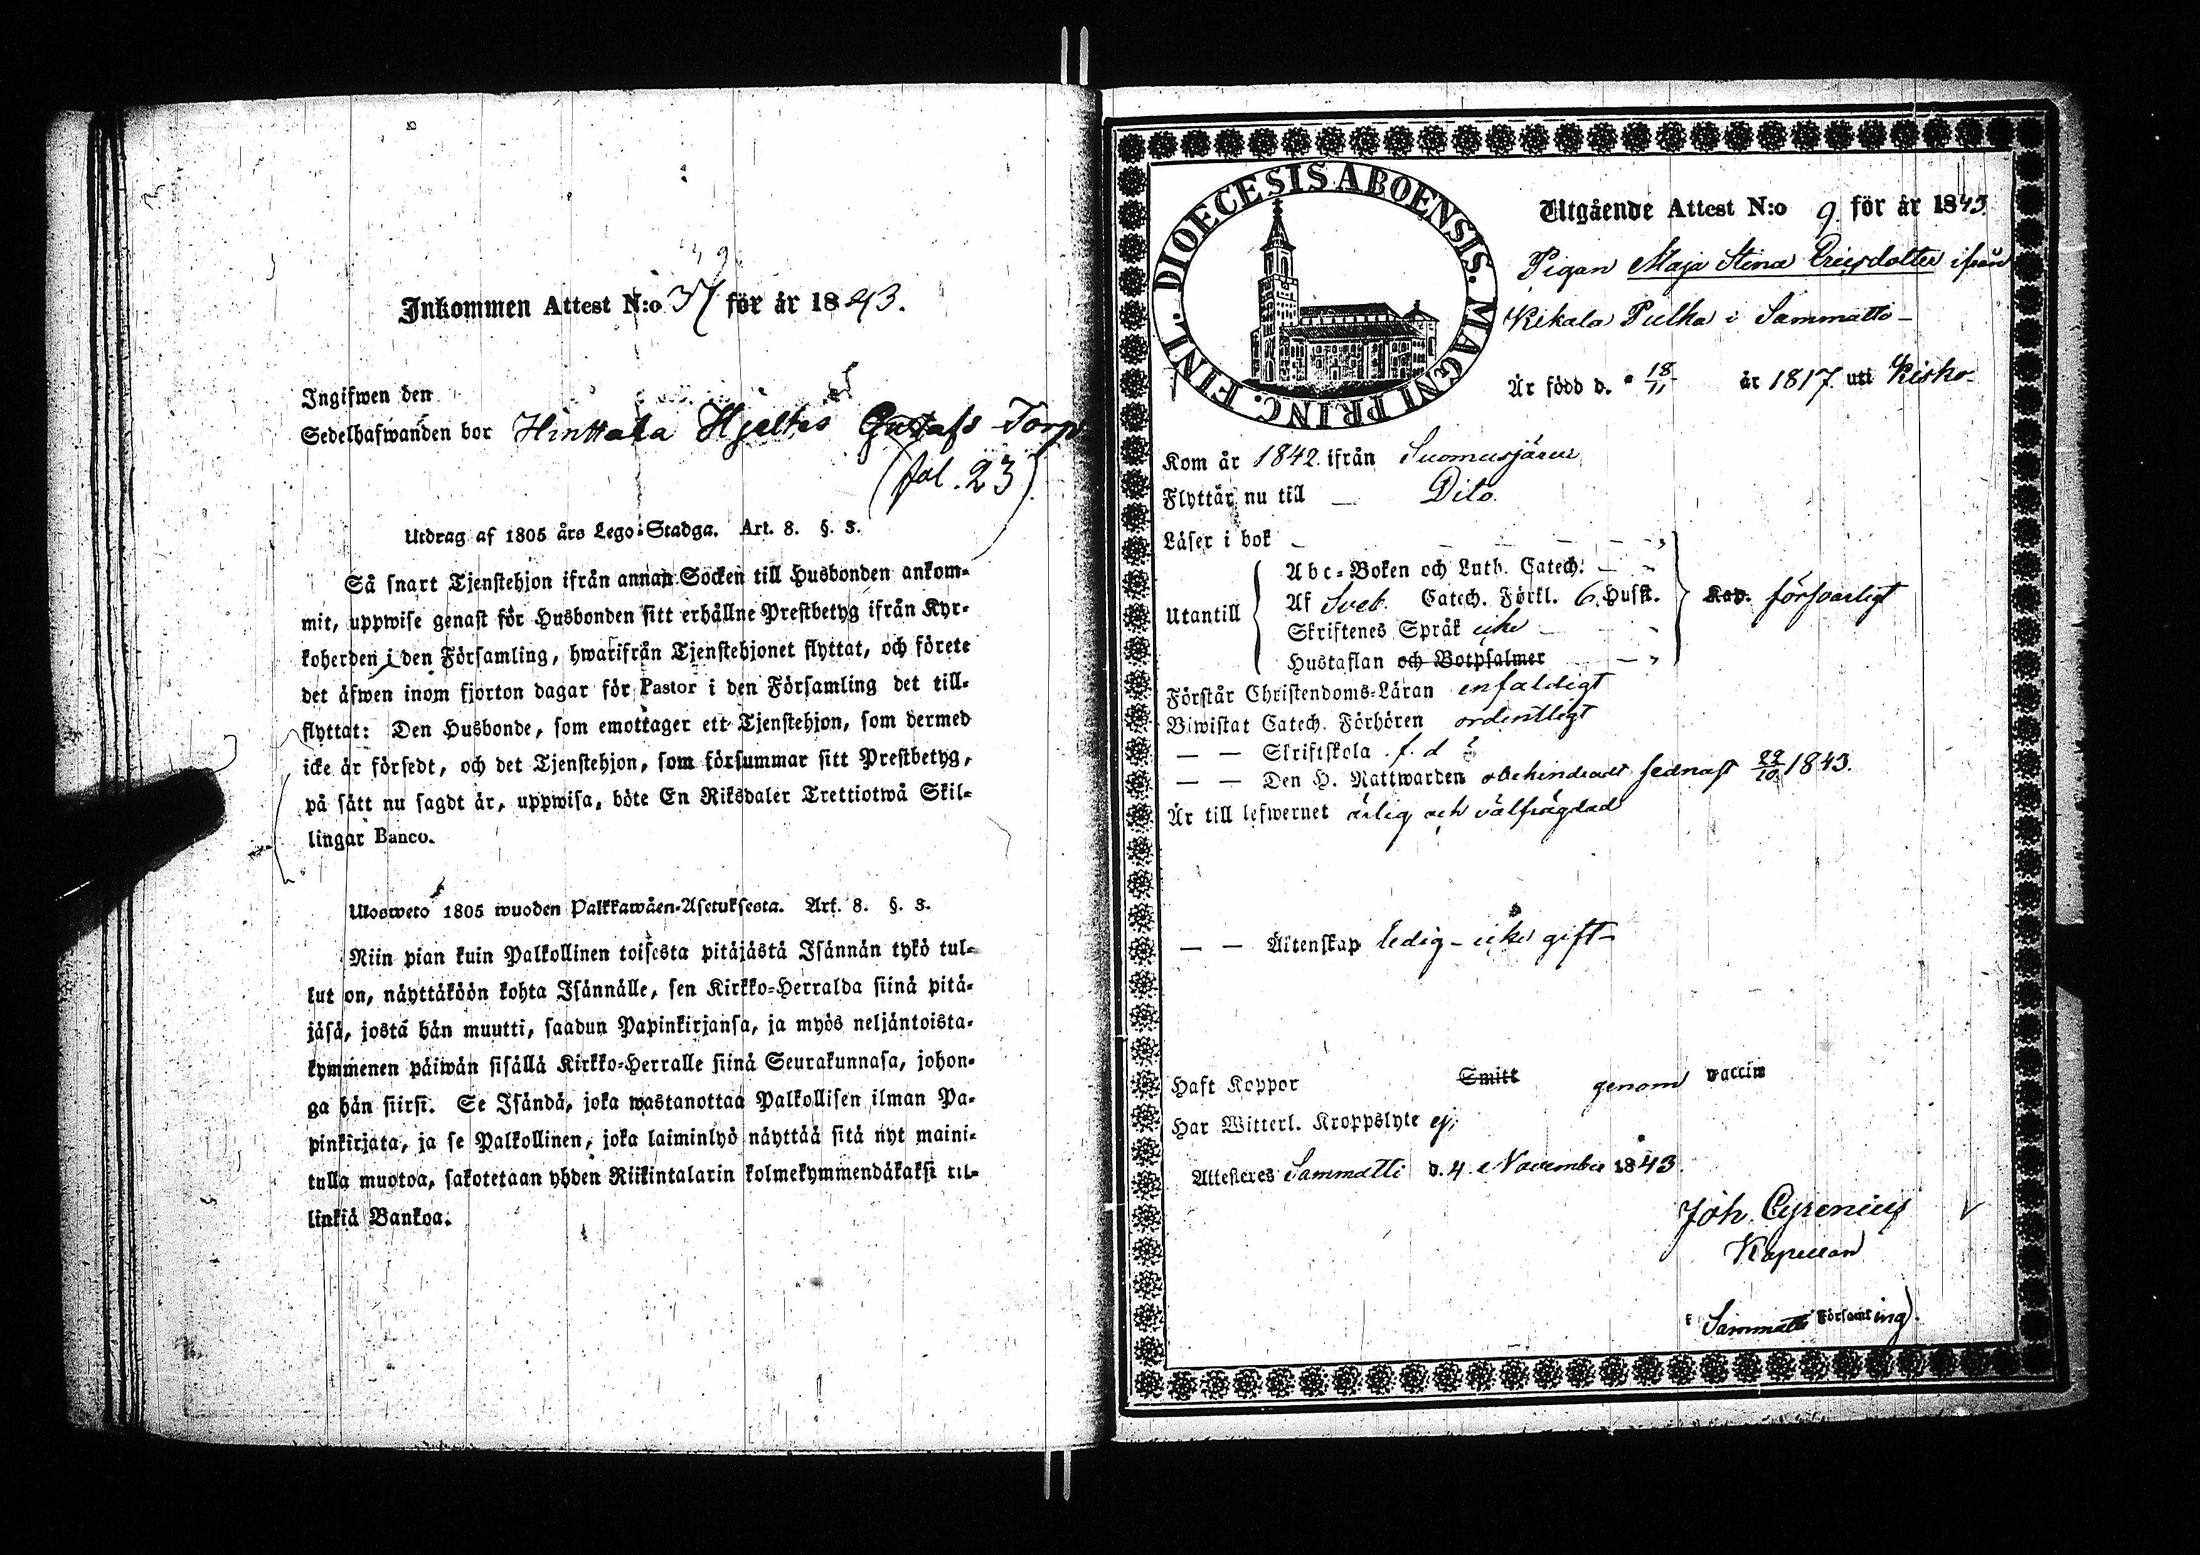 Inkommen Attest N:o 37 för år 1843.
Ingifwen den
Sedelhafwanden bor Hinttala Hjeltes Gustafs Torp
(fol. 23)
Utdrag af 1805 års Lego-Stadga. Art. 8. §. 3.
Så snart Tjenstehjon ifrån annan Socken till Husbonden ankom-
mit, uppwise genast för Husbonden sitt erhållne Prestbetyg ifrån Kyr-
koherden i den Församling, hwarifrån Tjenstehjonet flyttat, och förete
det äfwen inom fjorton dagar för Pastor i den Församling det till-
flyttat: Den Husbonde, som emottager ett Tjenstehjon, som dermed
icke är försedt, och det Tjenstehjon, som försummar sitt Prestbetyg,
på sätt nu sagdt är, uppwisa, böte En Riksdaler Trettiotwå Skil-
lingar Banco.
Ulosweto 1805 wuoden Palkkawäen-Asetuksesta. Art. 8. §. 3.
Niin pian kuin Palkollinen toisesta pitäjästä Isännän tykö tul-
lut on, näyttäköön kohta Isännälle, sen Kirkko-Herralda siinä pitä-
jäsä, josta hän muutti, saadun Papinkirjansa, ja myös neljäntoista-
kymmenen päiwän sisällä Kirkko-Herralle siinä Seurakunnasa, johon-
ga hän siirsi. Se Isändä, joka wastanottaa Palkollisen ilman Pa-
pinkirjata, ja se Palkollinen, joka laiminlyö näyttää sitä nyt maini-
tulla muotoa, sakotetaan yhden Riikintalarin kolmekymmendäkaksi kil-
linkiä Bankoa.
DIOECESIS ABOENSIS. MAGNI PRINC. FINL.
Utgående Attest N:o 9 för år 1843
Pigan Maja Stina Ericsdotter ifrån
Kikala Pulka i Sammatti
Är född d. 18/11 år 1817 uti Kisko
Kom år 1842 ifrån Suomusjärvi
Flyttar nu till — Dito.
Läser i bok
Abc-Boken och Luth. Catech.
Utantill Af Sveb. Catech. Förkl. 6. Hufst. Kap. försvarligt
Skriftenes Språk icke
Hustaflan och Botpsalmer
Förstår Christendoms-Läran enfaldigt
Biwistat Catech. Förhören ordentligt
— — Skriftskola f. d
— — Den H. Nattwarden obehindradt sednast 22/10 1843.
Är till lefwernet ärlig och välfrägdad
— — Äktenskap ledig – icke gift –
Haft Koppor Smitt genom vaccin
Har Witterl. Kroppslyte ej;
Attesteres Sammatti d. 4 November 1843.
Joh. Cyrenius
Kapellan
i Sammatti Församling.